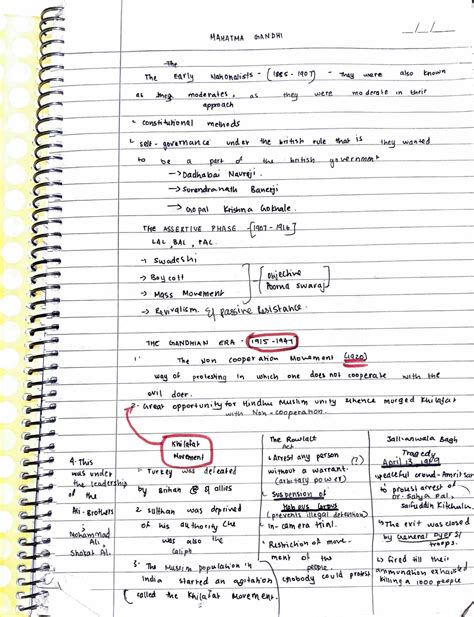 MAHATMA GANDHI
The
The early Nationalists - (1885 - 1907) - They were also known
as they moderates, as they were moderate in their
approach
- constitutional methods
- self - governance under the british rule that is they wanted
to be a part of the british government
→ Dadhabai Navroji
→ Surendranath Banerji
→ Gopal Krishna Gokhale.
THE ASSERTIVE PHASE - [1907 - 1916]
LAL, BAL, PAL.
→ Swadeshi
→ Boycott
→ Mass Movement
Objective
Poorna Swaraj
→ Revivalism. & Passive Resistance.
THE GANDHIAN ERA - 1915 - 1947
1. The Non Cooperation Movement (1920)
way of protesting in which one does not cooperate with the
evil doer.
2. Great opportunity for Hindhu Muslim unity & hence murged Khilafat
with Non-cooperation.
Khilafat
Movement
1. Turkey was defeated
by Britian & allies
2. Sulthan was deprived
of his authority (he
was also the
calipt
3. The Muslim population in
India started an agitation
called the Khilafat Movement.
4. This
was under
the leadership
of the
Ali - Brothers
Mohammad
Ali,
Shokat Ali.
The Rowlatt
Act
• Arrest any person (?)
without a warrant.
(arbitary power)
• Suspension of
Habeus Corpus
(prevents illegal detention)
• In-camera trial.
• Restriction of move-
ment of the
people.
(nobody could protest
Jallianwala Bagh
Tragedy
April 13, 1919
• peaceful crowd - Amritsar
to protest arrest of
Dr. Satya Pal,
Saifuddin Kitchlu
• The exit was closed
by General Dyer's
troops.
• fired till their
ammunition exhausted
killing a 1000 people